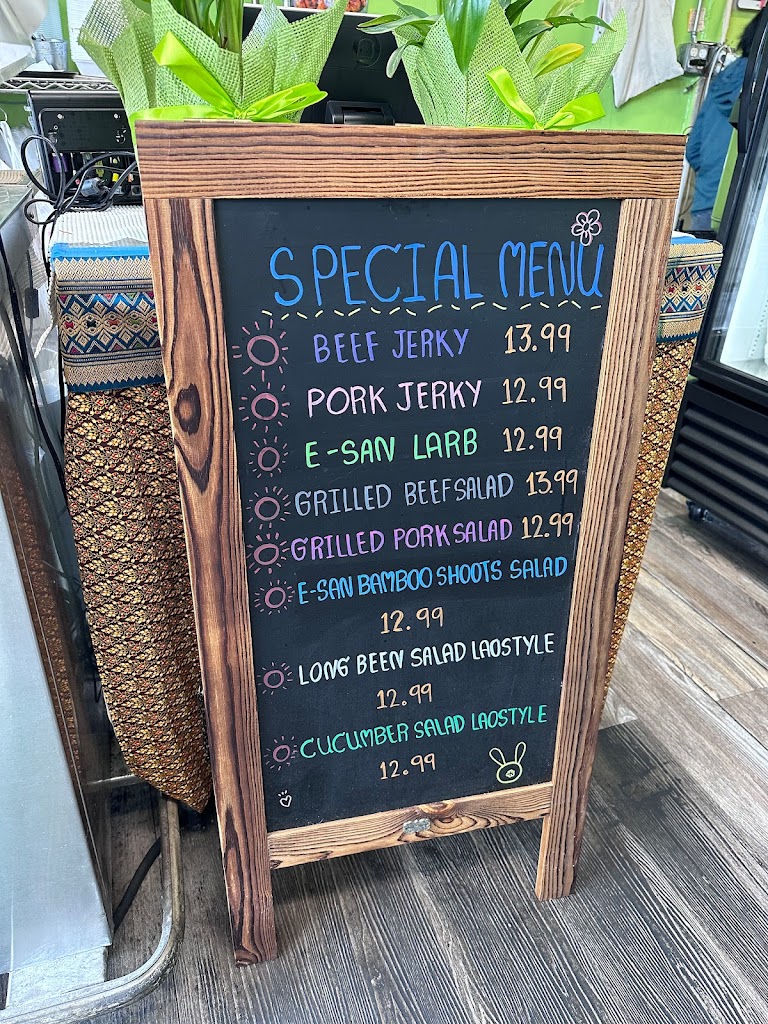 SPECIAL MENU
BEEF JERKY 13.99
PORK JERKY 12.99
E-SAN LARB 12.99
GRILLED BEEF SALAD 13.99
GRILLED PORK SALAD 12.99
E-SAN BAMBOO SHOOTS SALAD
12.99
LONG BEEN SALAD LAOSTYLE
12.99
CUCUMBER SALAD LAOSTYLE
12.99